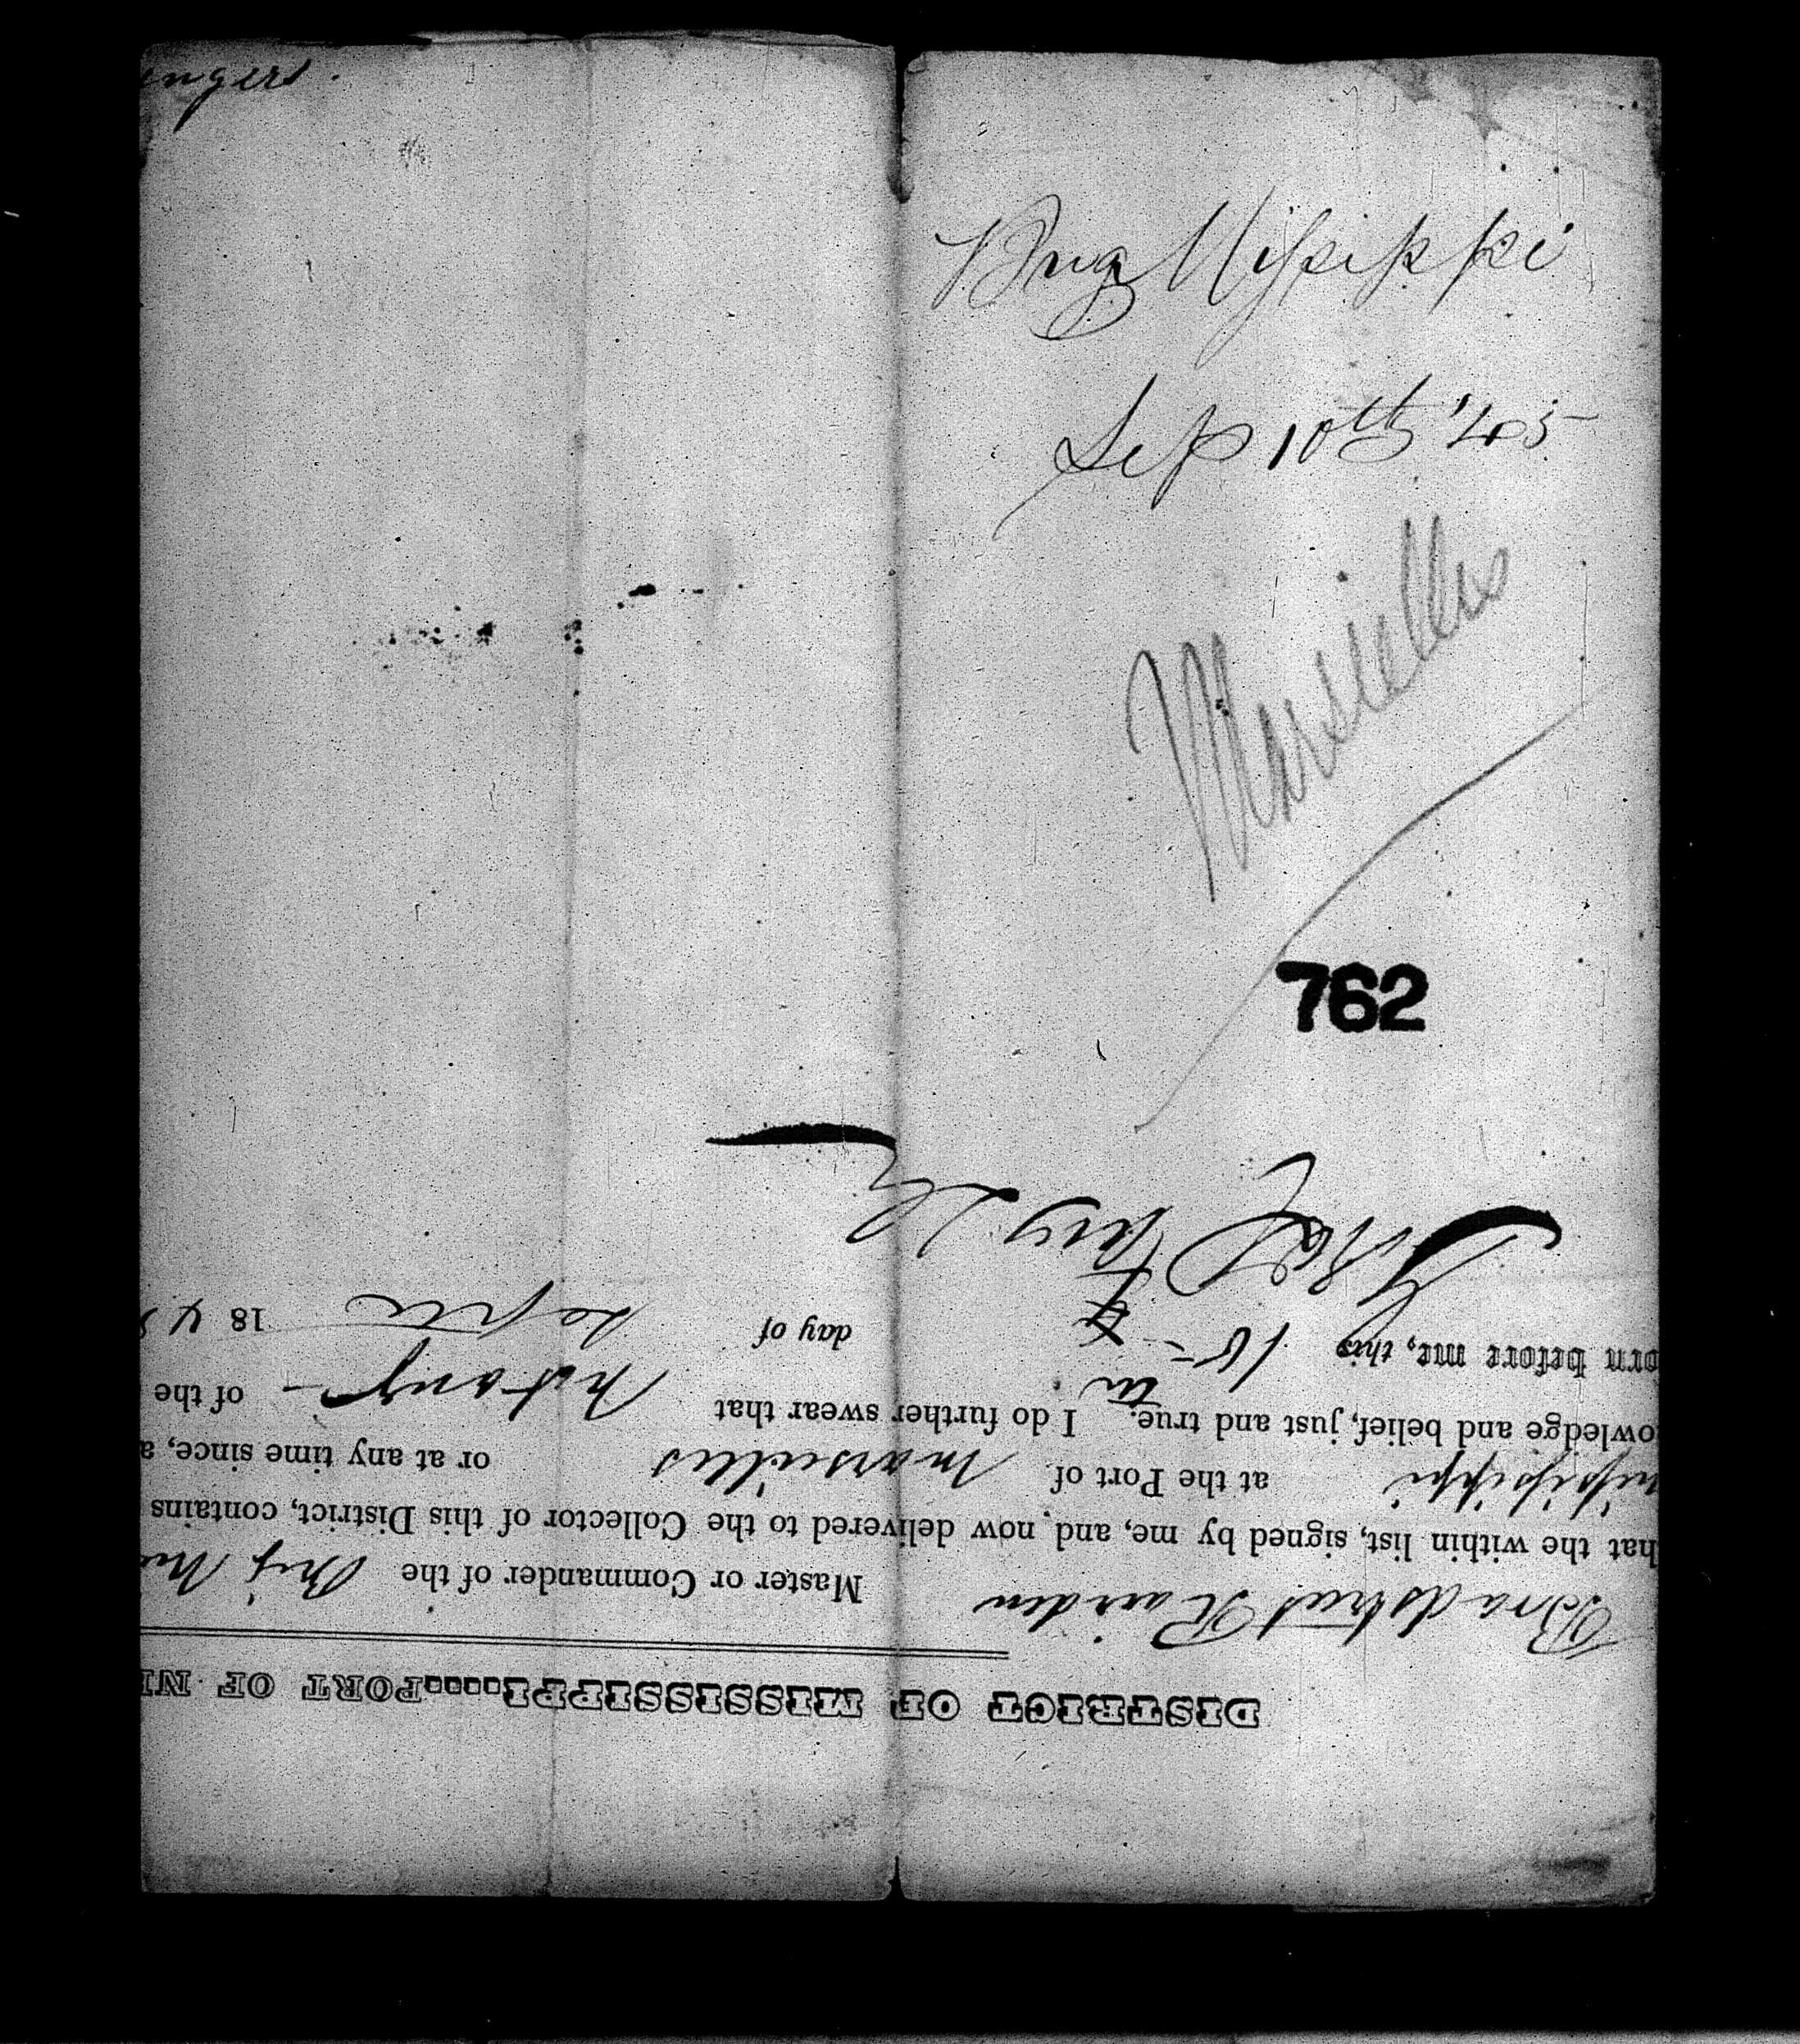 engers.
Brig Missisippi
Sep 10th '45
Marseilles
762
DISTRICT OF MISSISSIPPI.....PORT OF NE
Bradstreet Master or Commander of the Brig Mis
hat the within list, signed by me, and now delivered to the Collector of this District, contains
issisippi at the Port of Marseilles or at any time since, a
owledge and belief, just and true. I do further swear that not any of the
orn before me, this 10 day of Septr 184